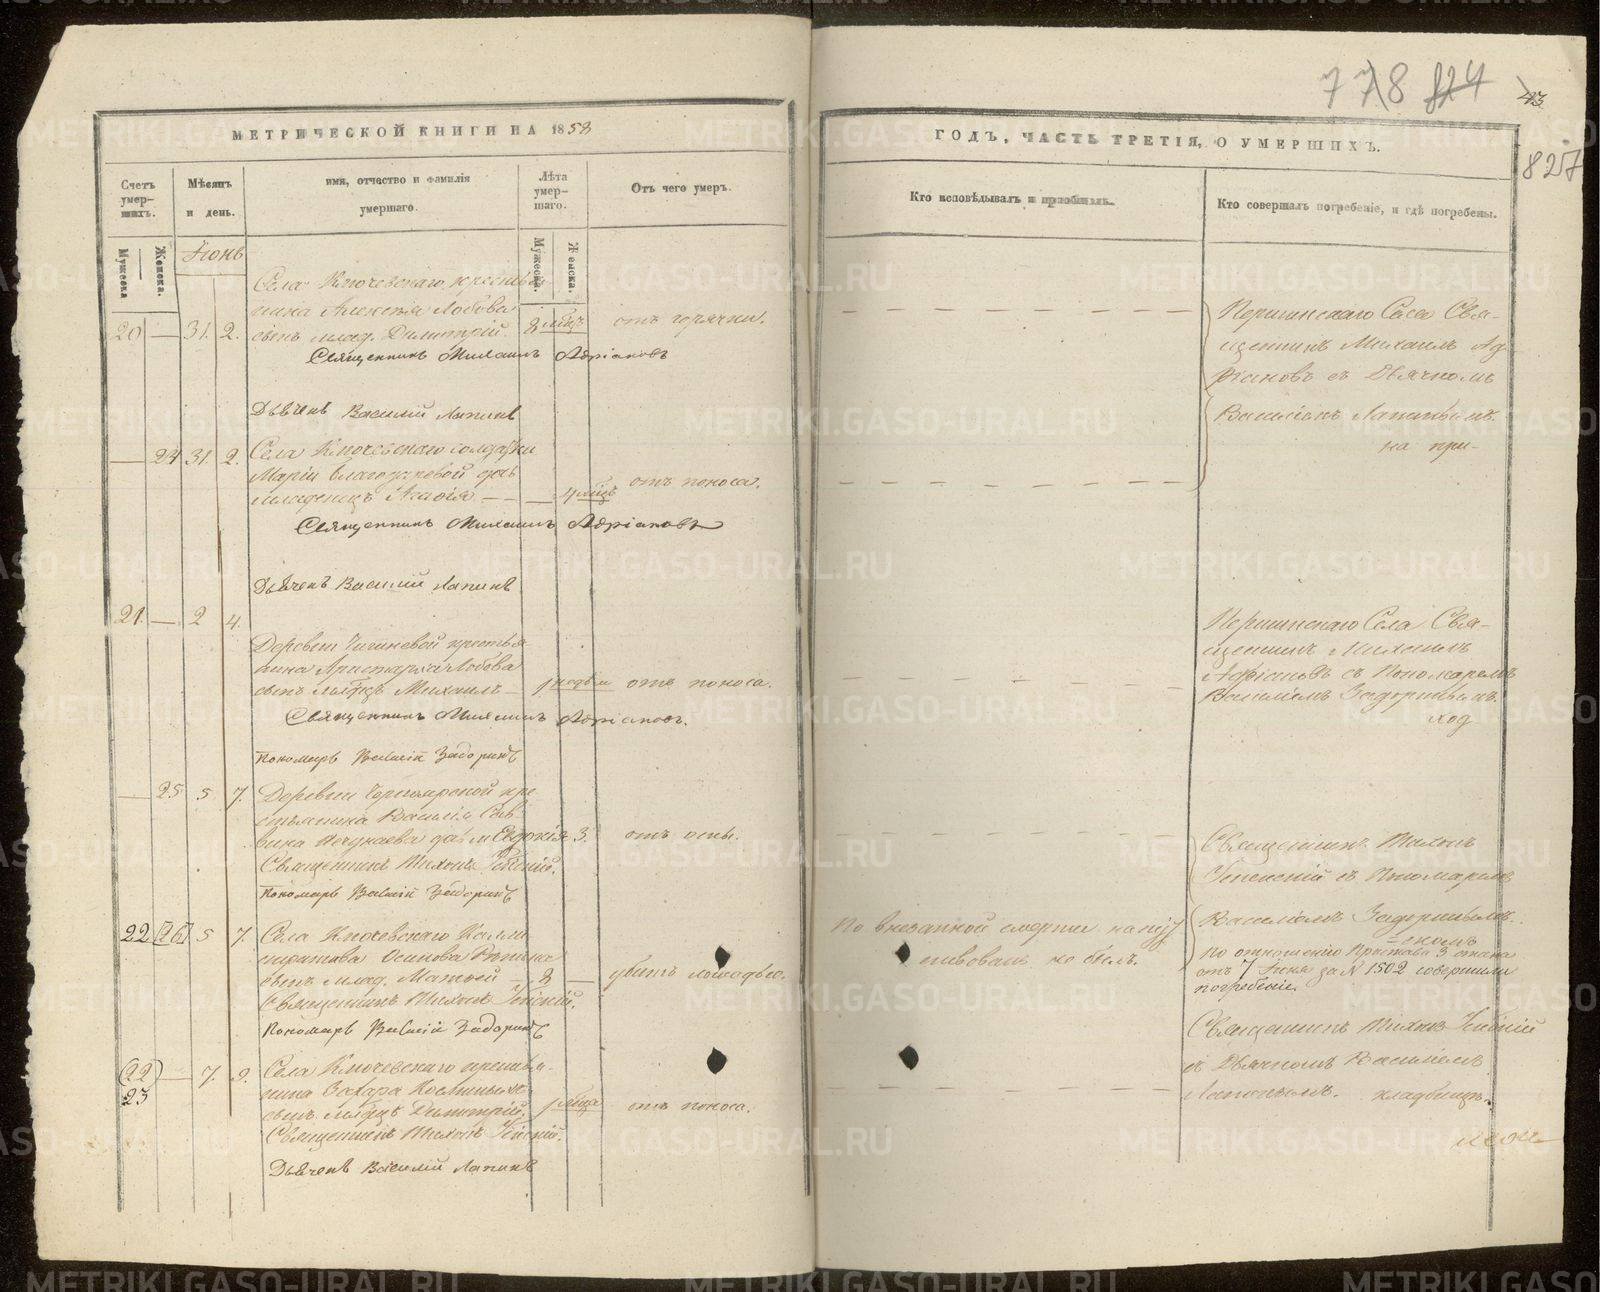 7 78 824
43
827
МЕТРИЧЕСКОЙ КНИГИ НА 1858
ГОДЪ, ЧАСТЬ ТРЕТІЯ, О УМЕРШИХЪ.
Счетъ умер-
шихъ.
Мѣсяцъ
и день.
имя, отчество и фамилія
умершаго.
Лѣта
умер-
шаго.
Отъ чего умеръ.
Кто исповѣдывалъ и пріобщалъ.
Кто совершалъ погребеніе, и гдѣ погребены.
Мужеска
Женска.
Мужеска.
Женска.
Іюнь
20 — 31. 2.
Села Ключевскаго крестья-
нина Алексѣя Лобова
сынъ млад. Димитрій.
отъ горячки.
Священникъ Михаилъ Адріановъ
Дьячекъ Василій Лапинъ
Першинскаго Села Свя-
щенникъ Михаилъ Ад-
ріановъ съ Дьячкомъ
Василіемъ Лапинымъ
на при-
— 24 31. 2.
Села Ключевскаго солдатки
Маріи Благодаровой дочь
младенецъ Агафія — —
отъ поноса.
Священникъ Михаилъ Адріановъ
Дьячекъ Василій Лапинъ
21. — 2 4.
Деревни крестья-
нина Аристарха Лобова
сынъ Михаилъ
отъ поноса.
Священникъ Михаилъ Адріановъ.
Пономарь Василій Задоринъ
Першинскаго Села Свя-
щенникъ Михаилъ
Адріановъ съ Пономаремъ
Василіемъ Задоринымъ.
ход
— 25 5 7.
Деревни кре-
стьянина Василія Сав-
вина 3.
отъ оспы.
Священникъ Тихонъ Успенскій.
Пономарь Василій Задоринъ
Священникъ Тихонъ
Успенскій съ Пономаремъ
Василіемъ Задоринымъ.
22 [26] 5 7.
Села Ключевскаго
Осипова Рѣпина
сынъ млад. Матвей 8 —
убитъ лошадью.
Священникъ Тихонъ Успенскій.
Пономарь Василій Задоринъ
По внезапной смерти напут-
ствованъ не былъ.
По отношенію Пристава 3 стана
отъ 7 Іюня за N 1502 совершили
погребеніе.
(22) — 7. 9.
23
Села Ключевскаго крестья-
нина Захара
сынъ Димитрій.
отъ поноса.
Священникъ Тихонъ Успенскій.
Дьячекъ Василій Лапинъ
Священникъ Тихонъ Успенскій
съ Дьячкомъ Василіемъ
Лапинымъ. кладбищѣ.
METRIKI.GASO-URAL.RU